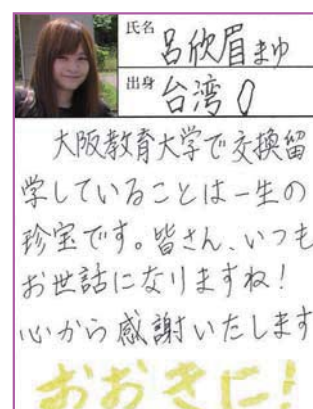 氏名 呂欣眉まゆ
出身 台湾
大阪教育大学で交換留
学していることは一生の
珍宝です。皆さん、いつも
お世話になりますね!
心から感謝いたします
おおきに!